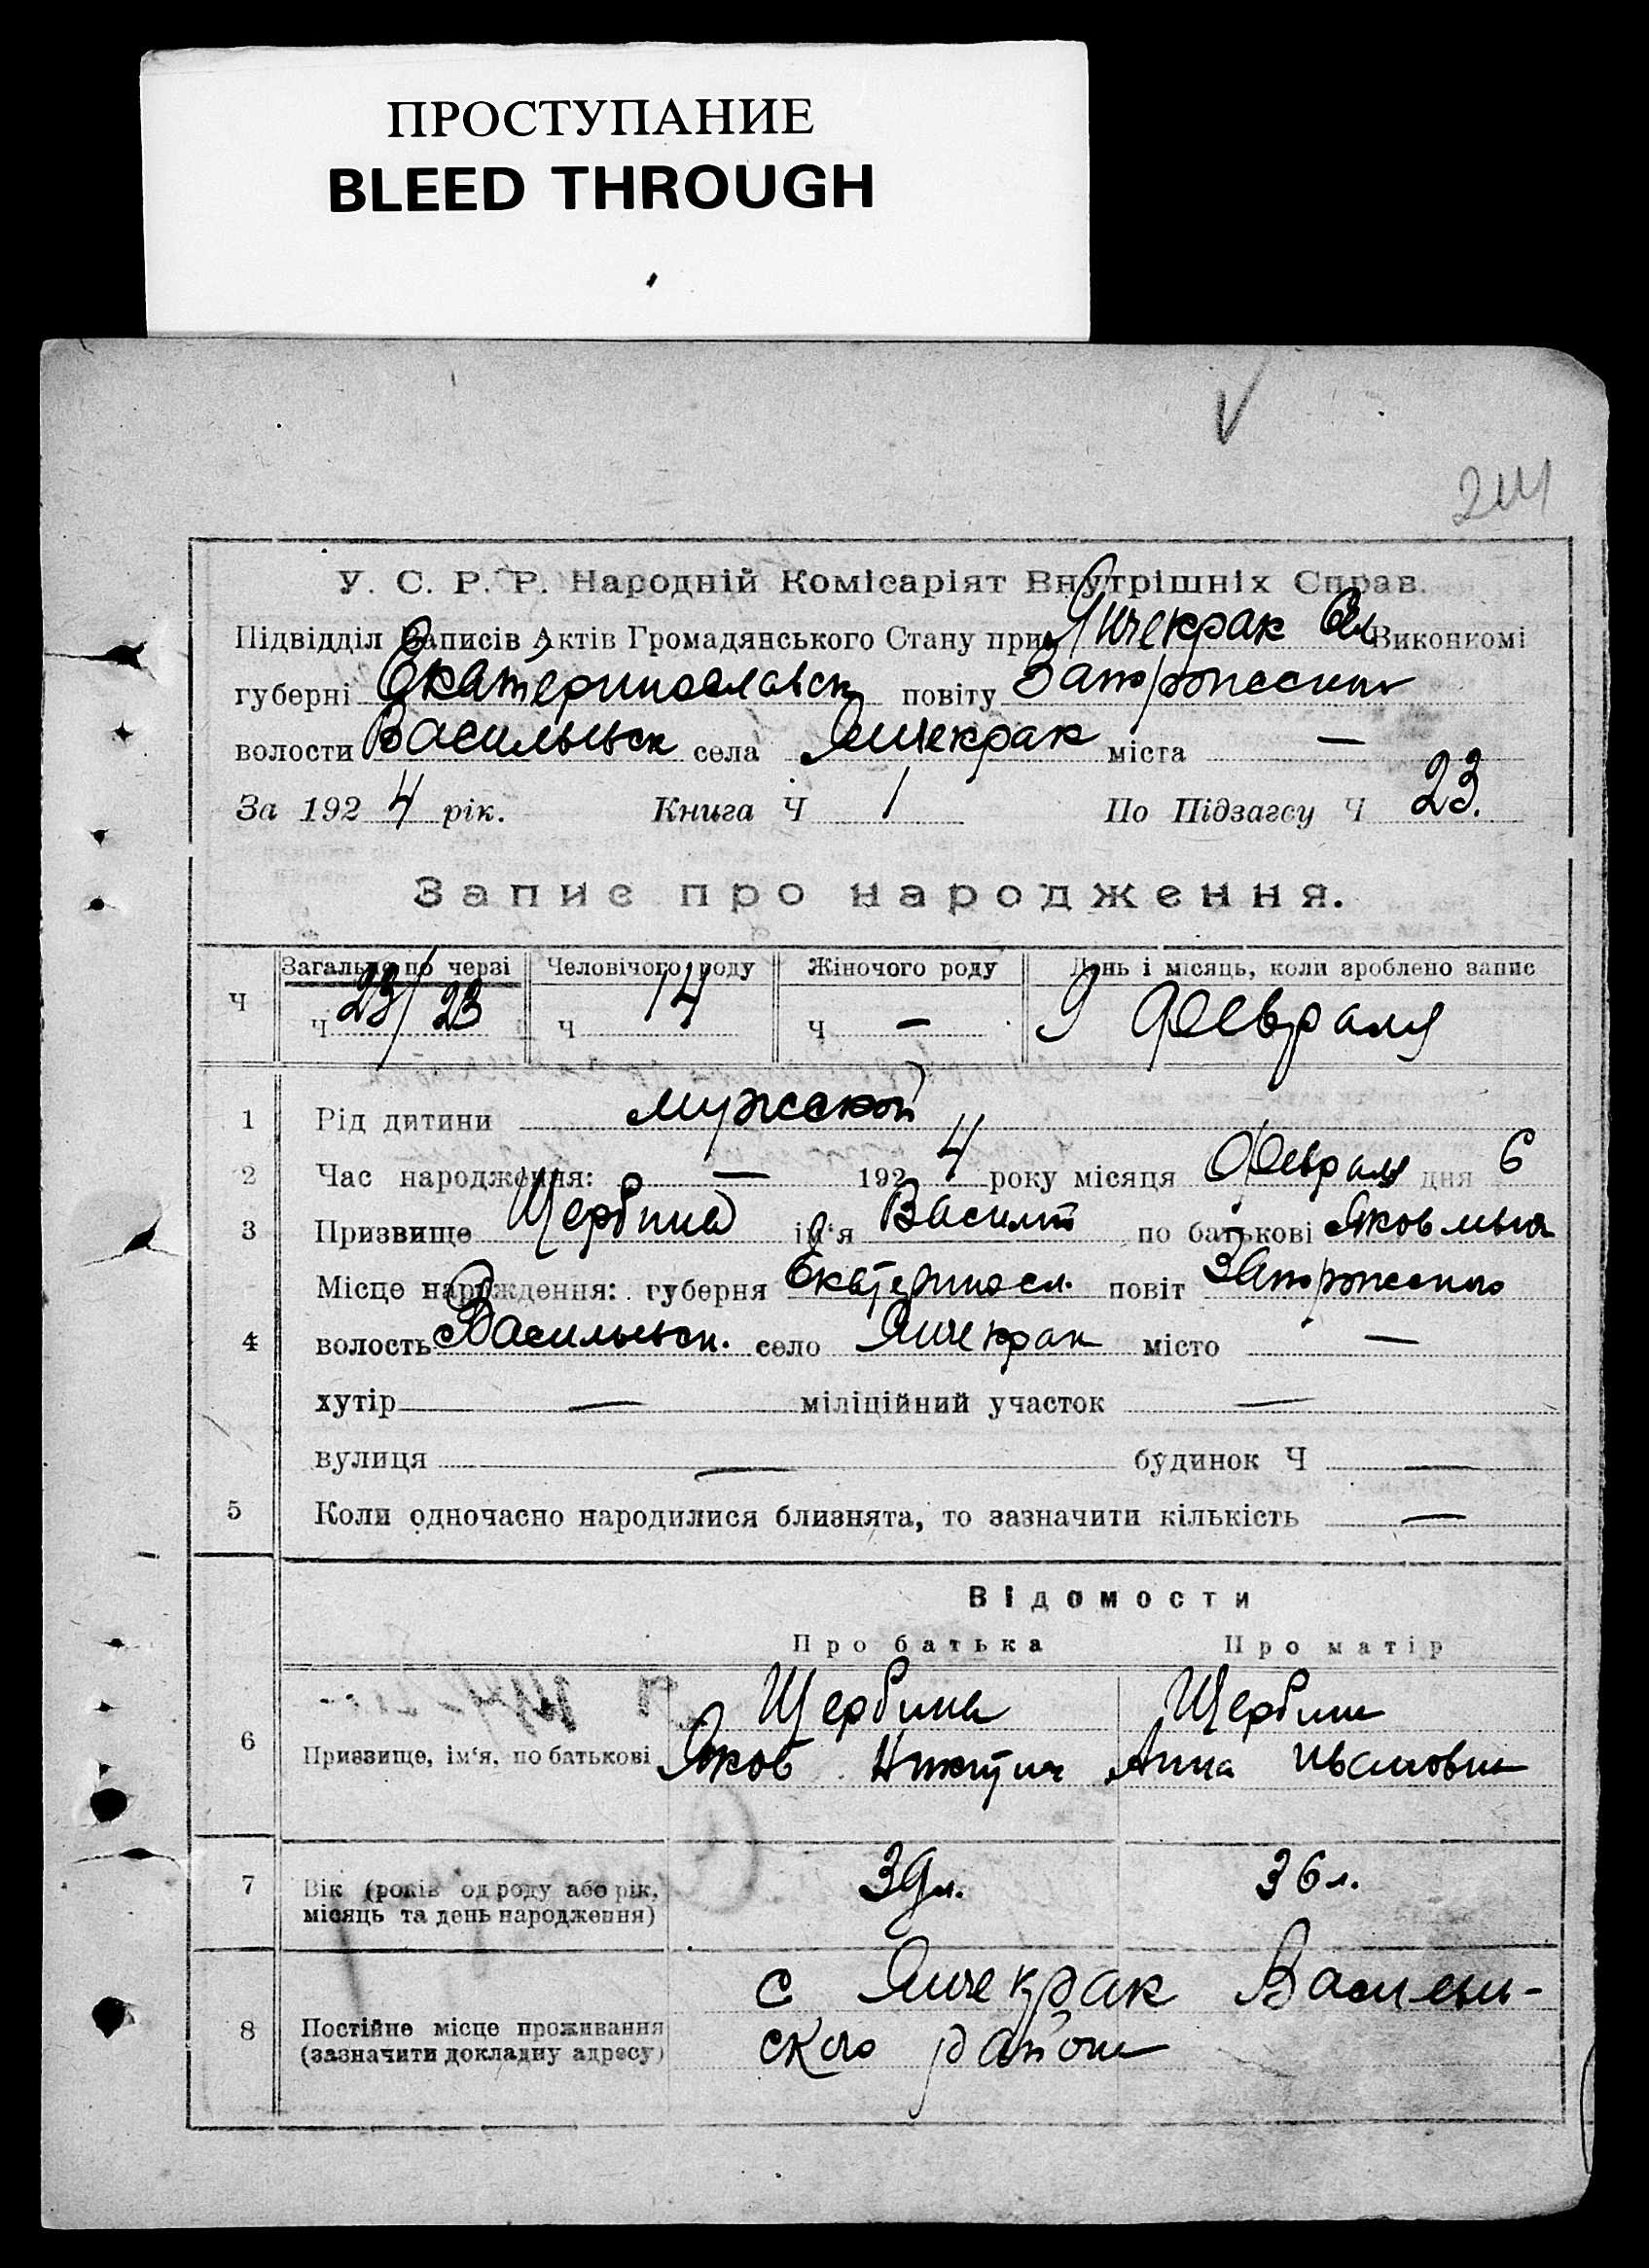 ПРОСТУПАНИЕ
BLEED THROUGH
V
У. С. Р. Р. Народній Комісаріят Внутрішніх Справ.
Підвідділ Записів Актів Громадянського Стану при Янчекрак Виконкомі
губерні Екатеринославск повіту Запорожского
волости Васильевск села Янчекрак міста —
За 1924 рік. Книга Ч 1 По Підзагсу Ч 23.
Запис про народження.
Загально по черзі Человічого роду Жіночого роду День і місяць, коли зроблено запис
Ч Ч 23/23 Ч 14 Ч — 9 Февраля
1 Рід дитини мужской
2 Час народження: — 1924 року місяця Февраля дня 6
3 Призвище Щербина ім'я Василий по батькові Яковлевич
Місце нарождення: губерня Екатериносл. повіт Запорожского
4 волость Васильевск. село Янчекрак місто —
хутір — міліційний участок —
вулиця — будинок Ч —
5 Коли одночасно народилися близнята, то зазначити кількість —
Відомости
Про батька Про матір
Щербина Щербина
6 Призвище, ім'я, по батькові Яков Никитич Анна Ивановна
7 Вік (років од роду або рік, 39 л. 36 л.
місяць та день народження)
с Янчекрак Васильев-
8 Постійне місце проживання ского района
(зазначити докладну адресу)